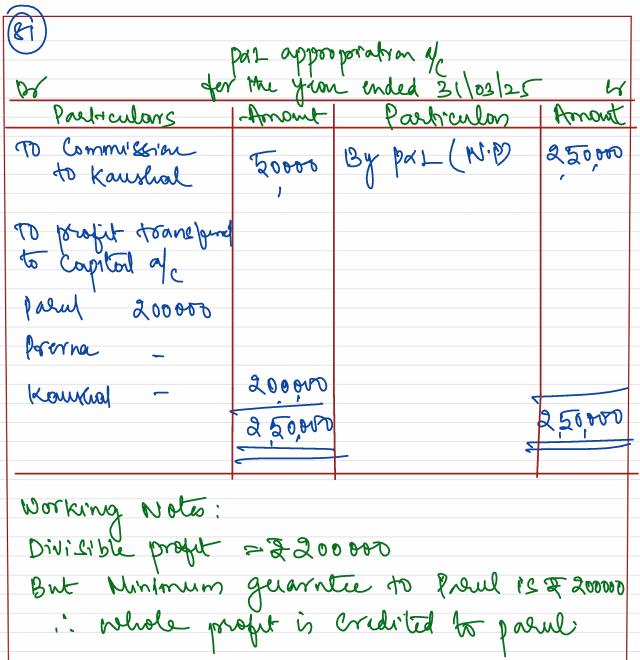 81
P&L appropriation a/c
Dr for the year ended 31/03/25 Cr
Particulars Amount Particulars Amount
To Commission to Kaushal 50,000 By P&L (N.P) 2,50,000
To profit transferred
to Capital a/c
Parul 200000
Prerna -
Kaushal - 2,00,000
2,50,000 2,50,000
Working Notes:
Divisible profit = ₹200000
But Minimum guarntee to Parul is ₹200000
∴ whole profit is credited to parul.